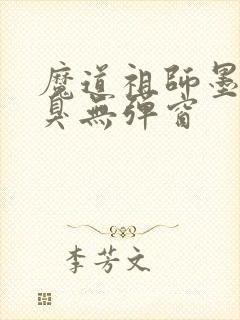 魔道祖師墨
臭無彈窗
李芳文